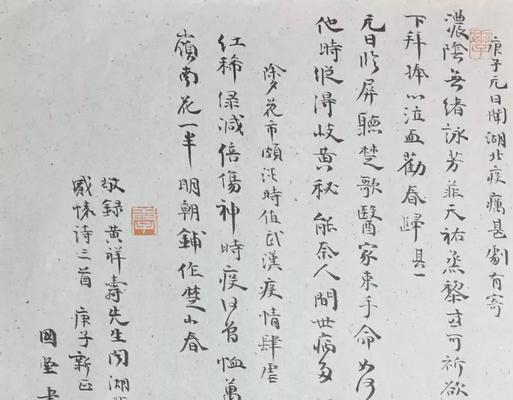 庚子元日聞湖北疫癘甚劇有寄
濃陰無緒詠芳菲天祐烝黎或可祈欲
下拜捧心泣血勸春歸其一
元日臨屏聽楚歌醫家束手命如何
他時縱得岐黃秘能奈人間世病多
除夕花市頗淡時值武漢疫情肆虐
紅稀綠減倍傷神時疫何曾恤萬
嶺南花一半明朝鋪作楚山春
敬錄黃祥壽先生聞湖
感懷詩三首庚子新正
國堅書